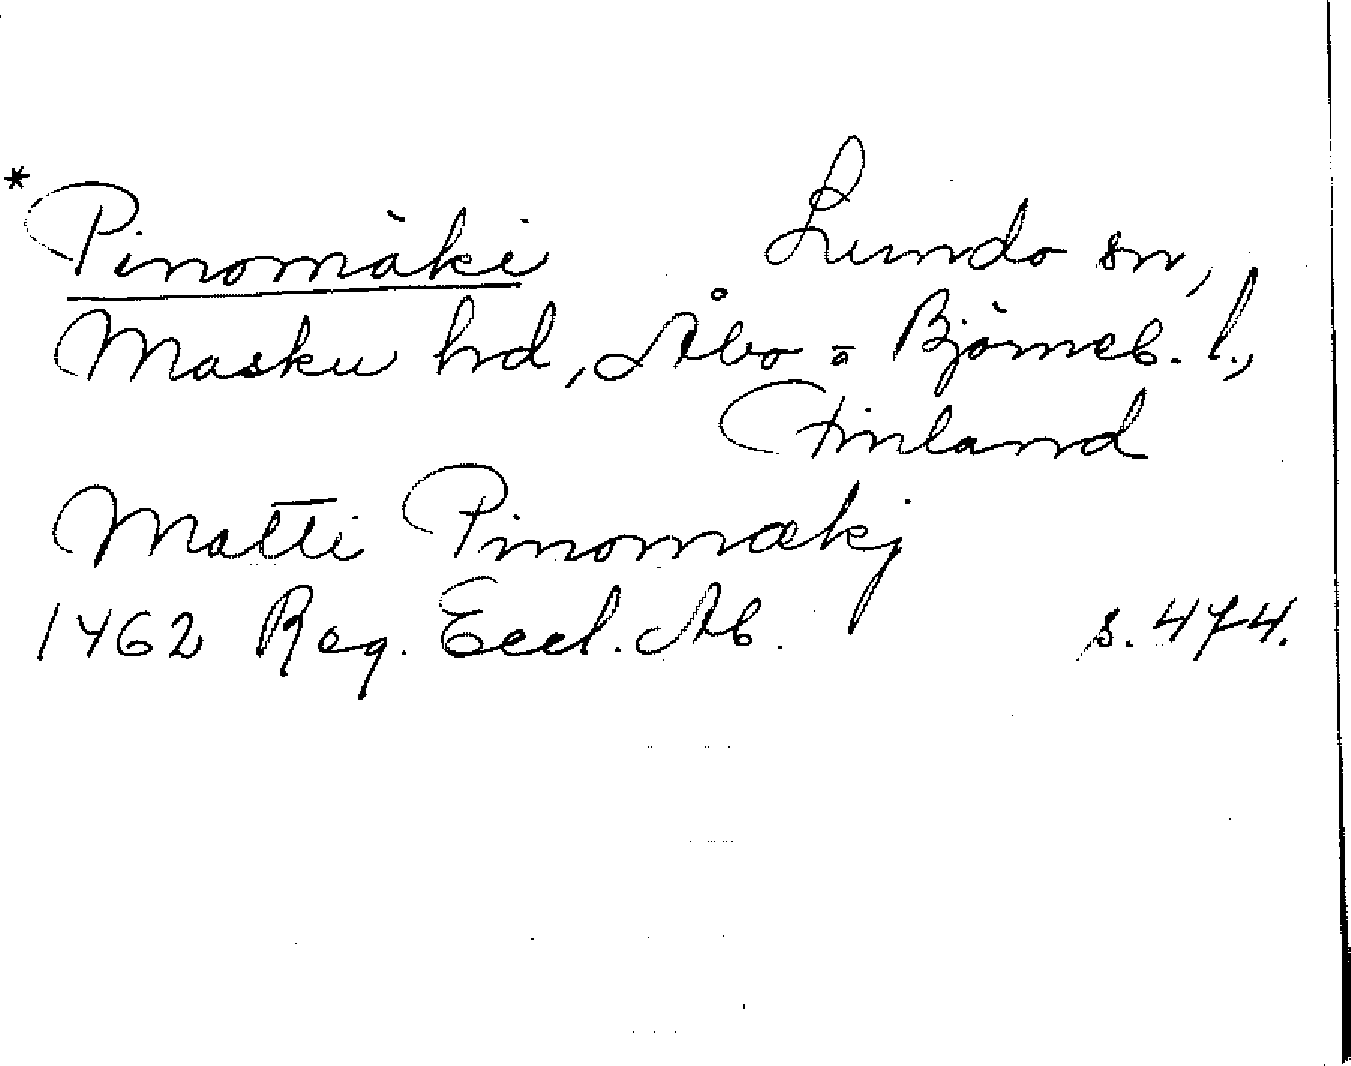 *Pinomäki Lundo sn,
Masku hd, Åbo o Björneb. l.,
Finland
Matti Pinomækj
1462 Reg. Eccl. Ab. s. 474.